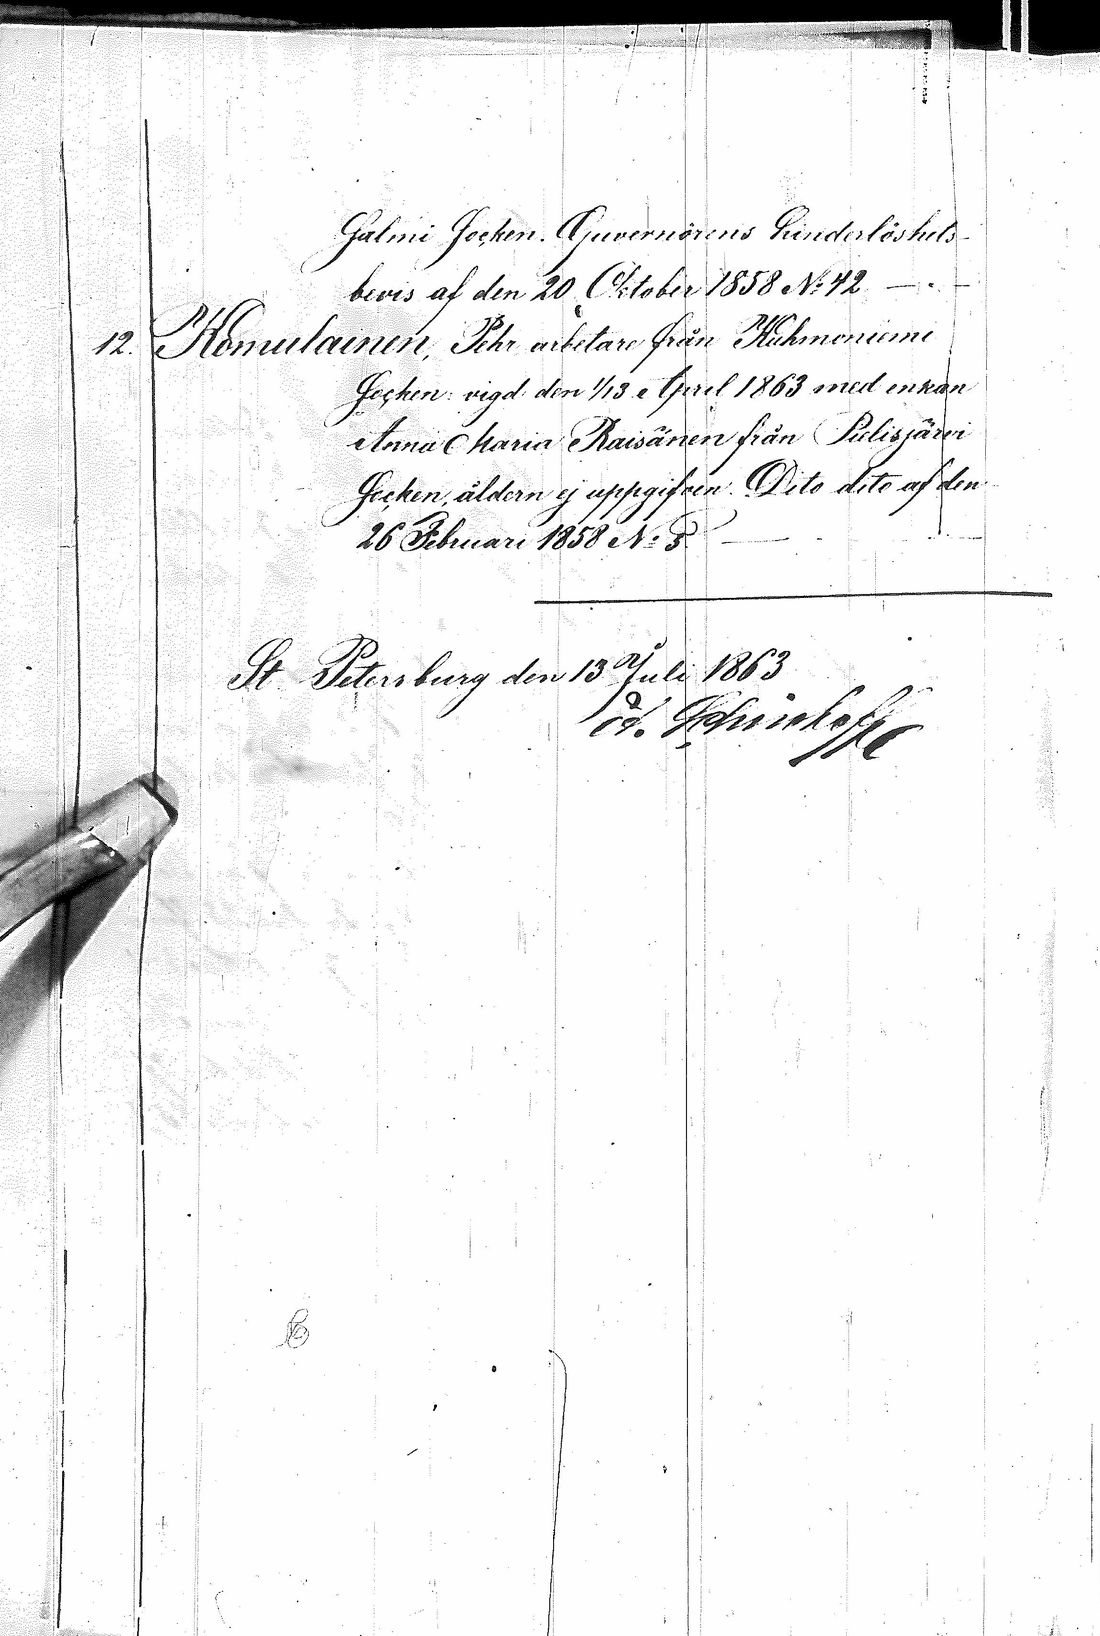 Galmi Socken. Guvernörens hinderlöshets-
bevis af den 20 Oktober 1858 No 42 — . —
12. Komulainen, Pehr arbetare från Kuhmoniemi
Socken: vigd den 1/13 April 1863 med enkan
Anna Maria Raisänen från Pielisjärvi
Socken, åldern ej uppgifven. Dito dito af den
26 Februari 1858 No 5. —
St Petersburg den 13 Juli 1863